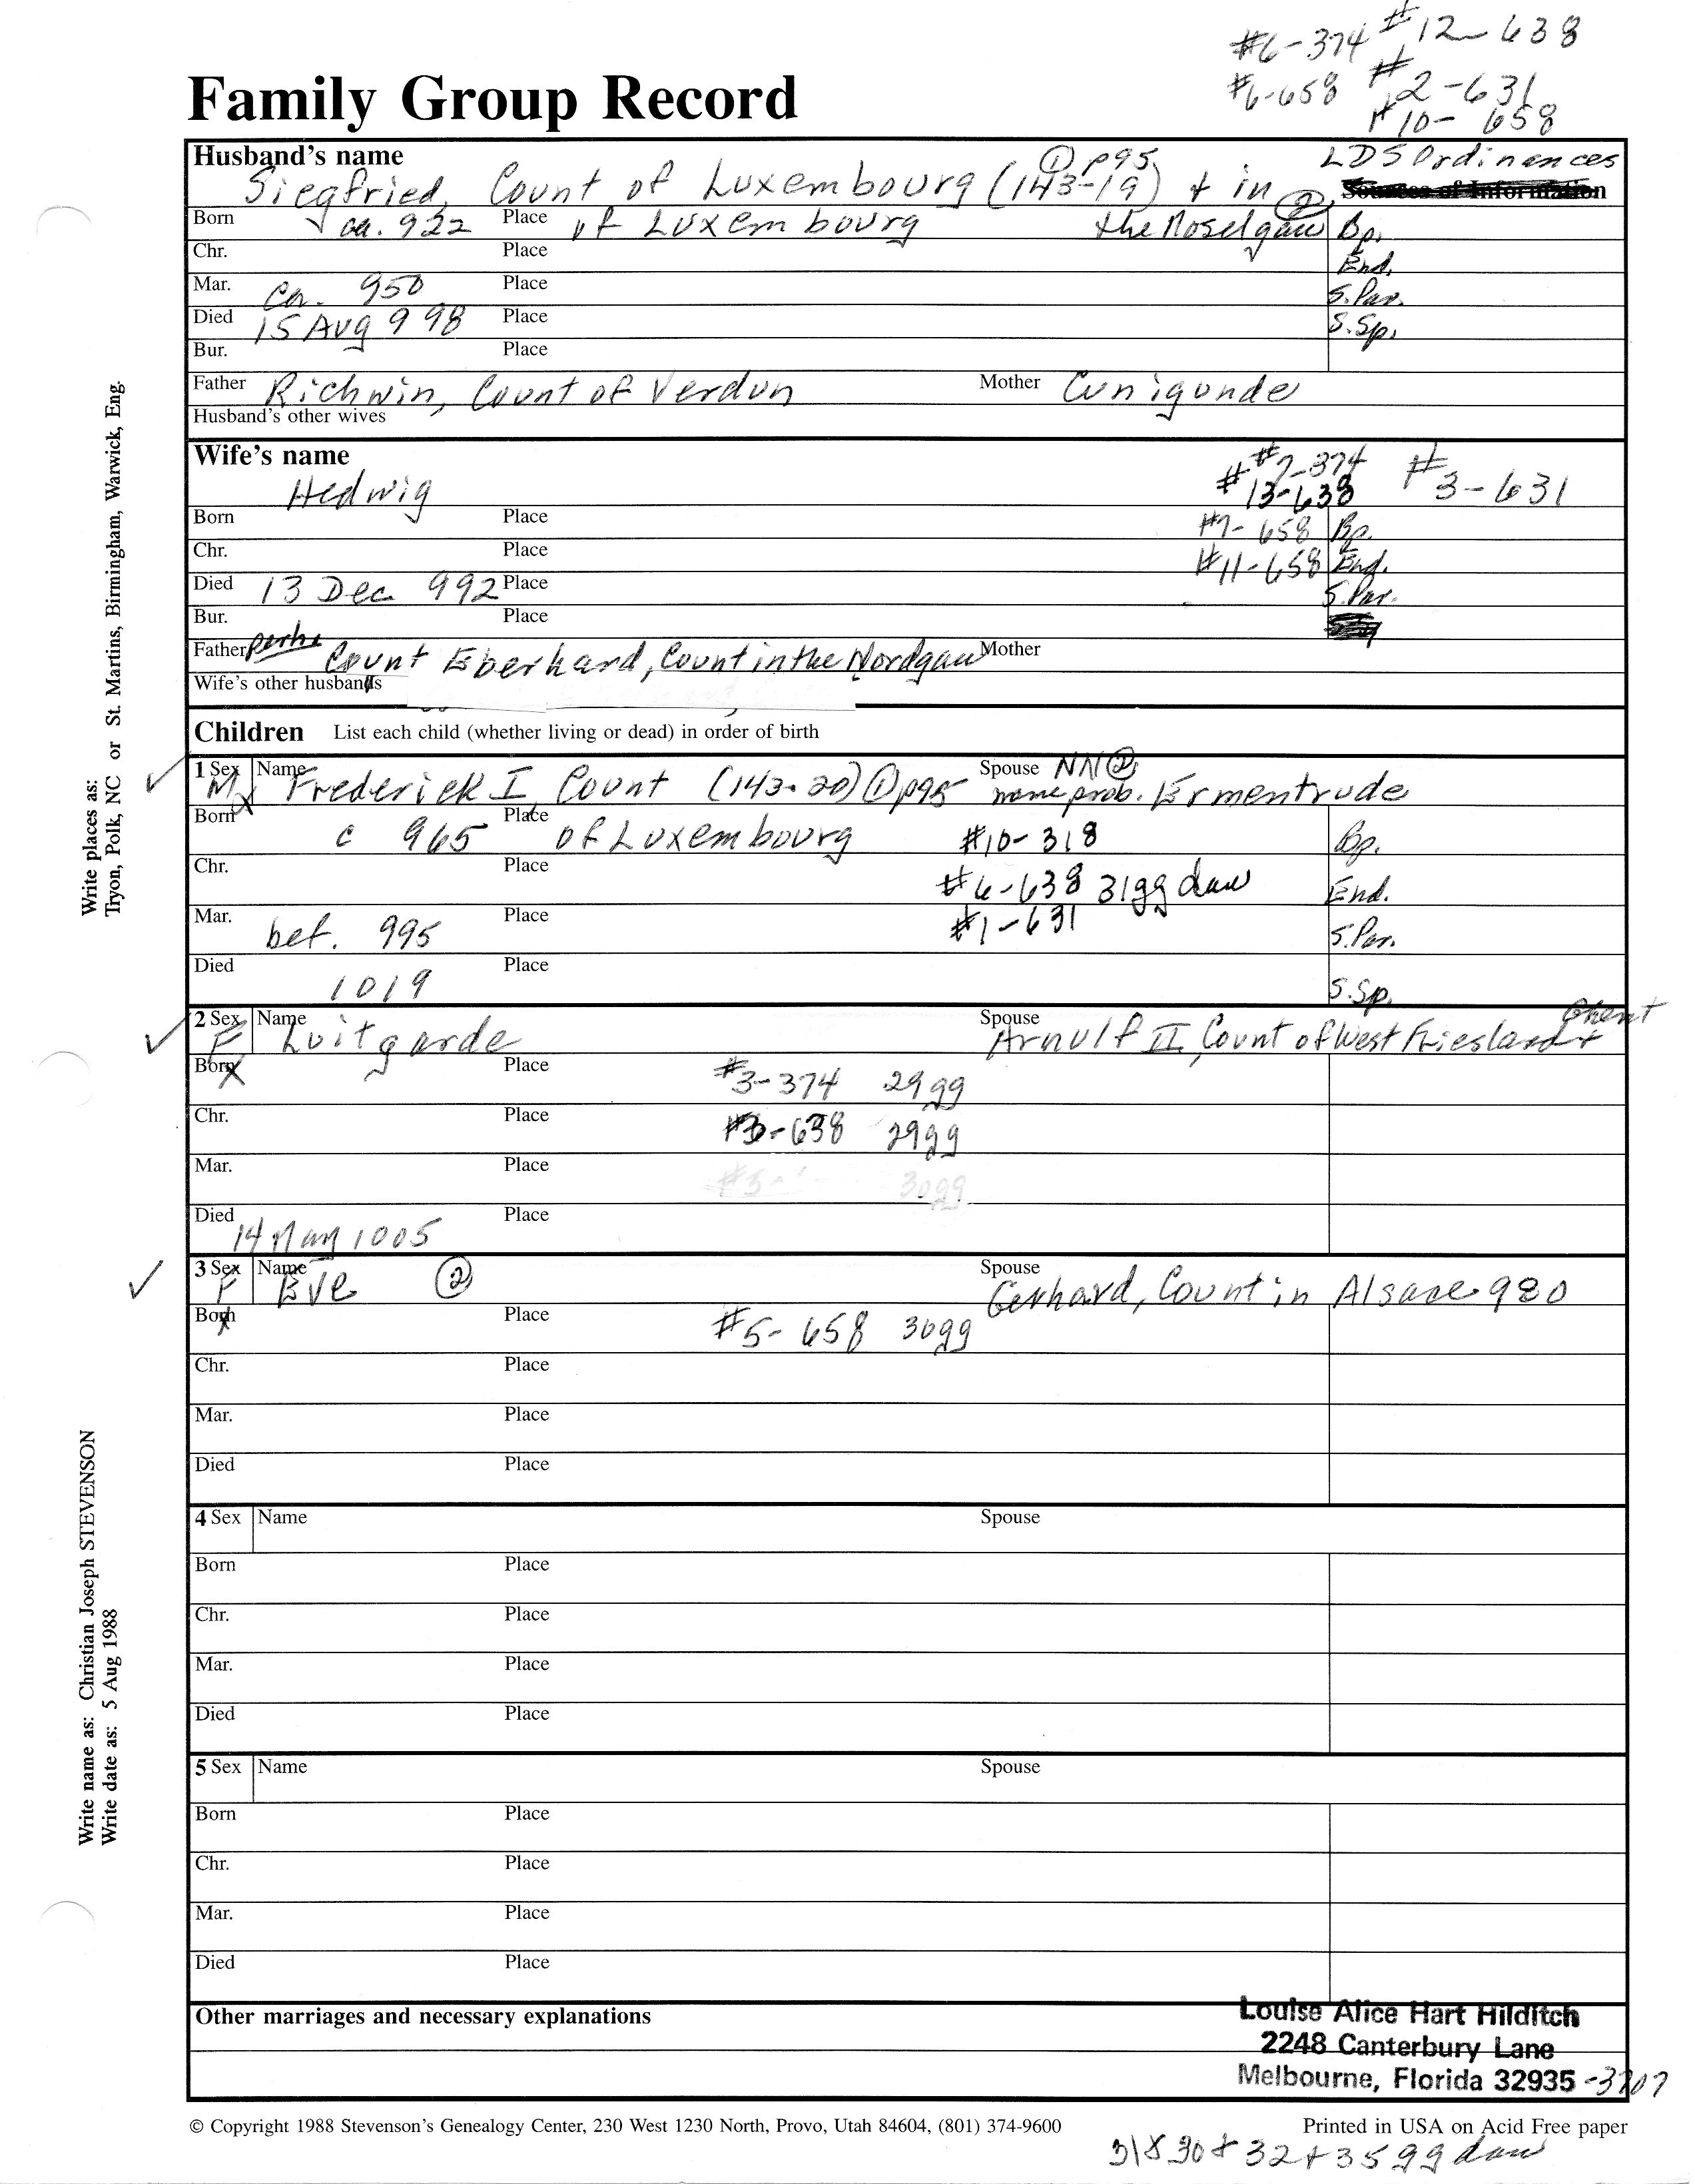 #6-374 #12-638
#6-658 #2-631
#10-658
Family Group Record
Husband's name ① p95 LDS Ordinances
Siegfried, Count of Luxembourg (143-19) + in ② Sources of Information
Born ca. 922 Place of Luxembourg the Moselgau Bp.
Chr. Place End.
Mar. ca. 950 Place S.Par.
Died 15 Aug 998 Place S.Sp.
Bur. Place
Father Richwin, Count of Verdun Mother Cunigunde
Husband's other wives
Wife's name #7-374 #3-631
Hedwig #13-638
Born Place #7-658 Bp.
Chr. Place #11-658 End.
Died 13 Dec 992 Place S.Par.
Bur. Place
Father perhs Count Eberhard, Count in the Nordgau Mother
Wife's other husbands
Children List each child (whether living or dead) in order of birth
1 Sex M Name Frederick I, Count (143-20) ① p95 Spouse NN ② name prob. Ermentrude
Born c 965 Place of Luxembourg #10-318 Bp.
Chr. Place #6-638 31gg dau End.
Mar. bef. 995 Place #1-631 S.Par.
Died 1019 Place S.Sp.
2 Sex F Name Luitgarde Spouse Arnulf II, Count of West Friesland + Ghent
Born Place #3-374 29gg
Chr. Place #3-638 29gg
Mar. Place #5- 30gg
Died 14 May 1005 Place
3 Sex F Name Eve ② Spouse Gerhard, Count in Alsace 980
Born Place #5-658 30gg
Chr. Place
Mar. Place
Died Place
4 Sex Name Spouse
Born Place
Chr. Place
Mar. Place
Died Place
5 Sex Name Spouse
Born Place
Chr. Place
Mar. Place
Died Place
Other marriages and necessary explanations Louise Alice Hart Hilditch
2248 Canterbury Lane
Melbourne, Florida 32935 -3707
© Copyright 1988 Stevenson's Genealogy Center, 230 West 1230 North, Provo, Utah 84604, (801) 374-9600 Printed in USA on Acid Free paper
31 & 30 + 32 + 35 gg dau
Write places as:
Tryon, Polk, NC or St. Martins, Birmingham, Warwick, Eng.
Write name as: Christian Joseph STEVENSON
Write date as: 5 Aug 1988